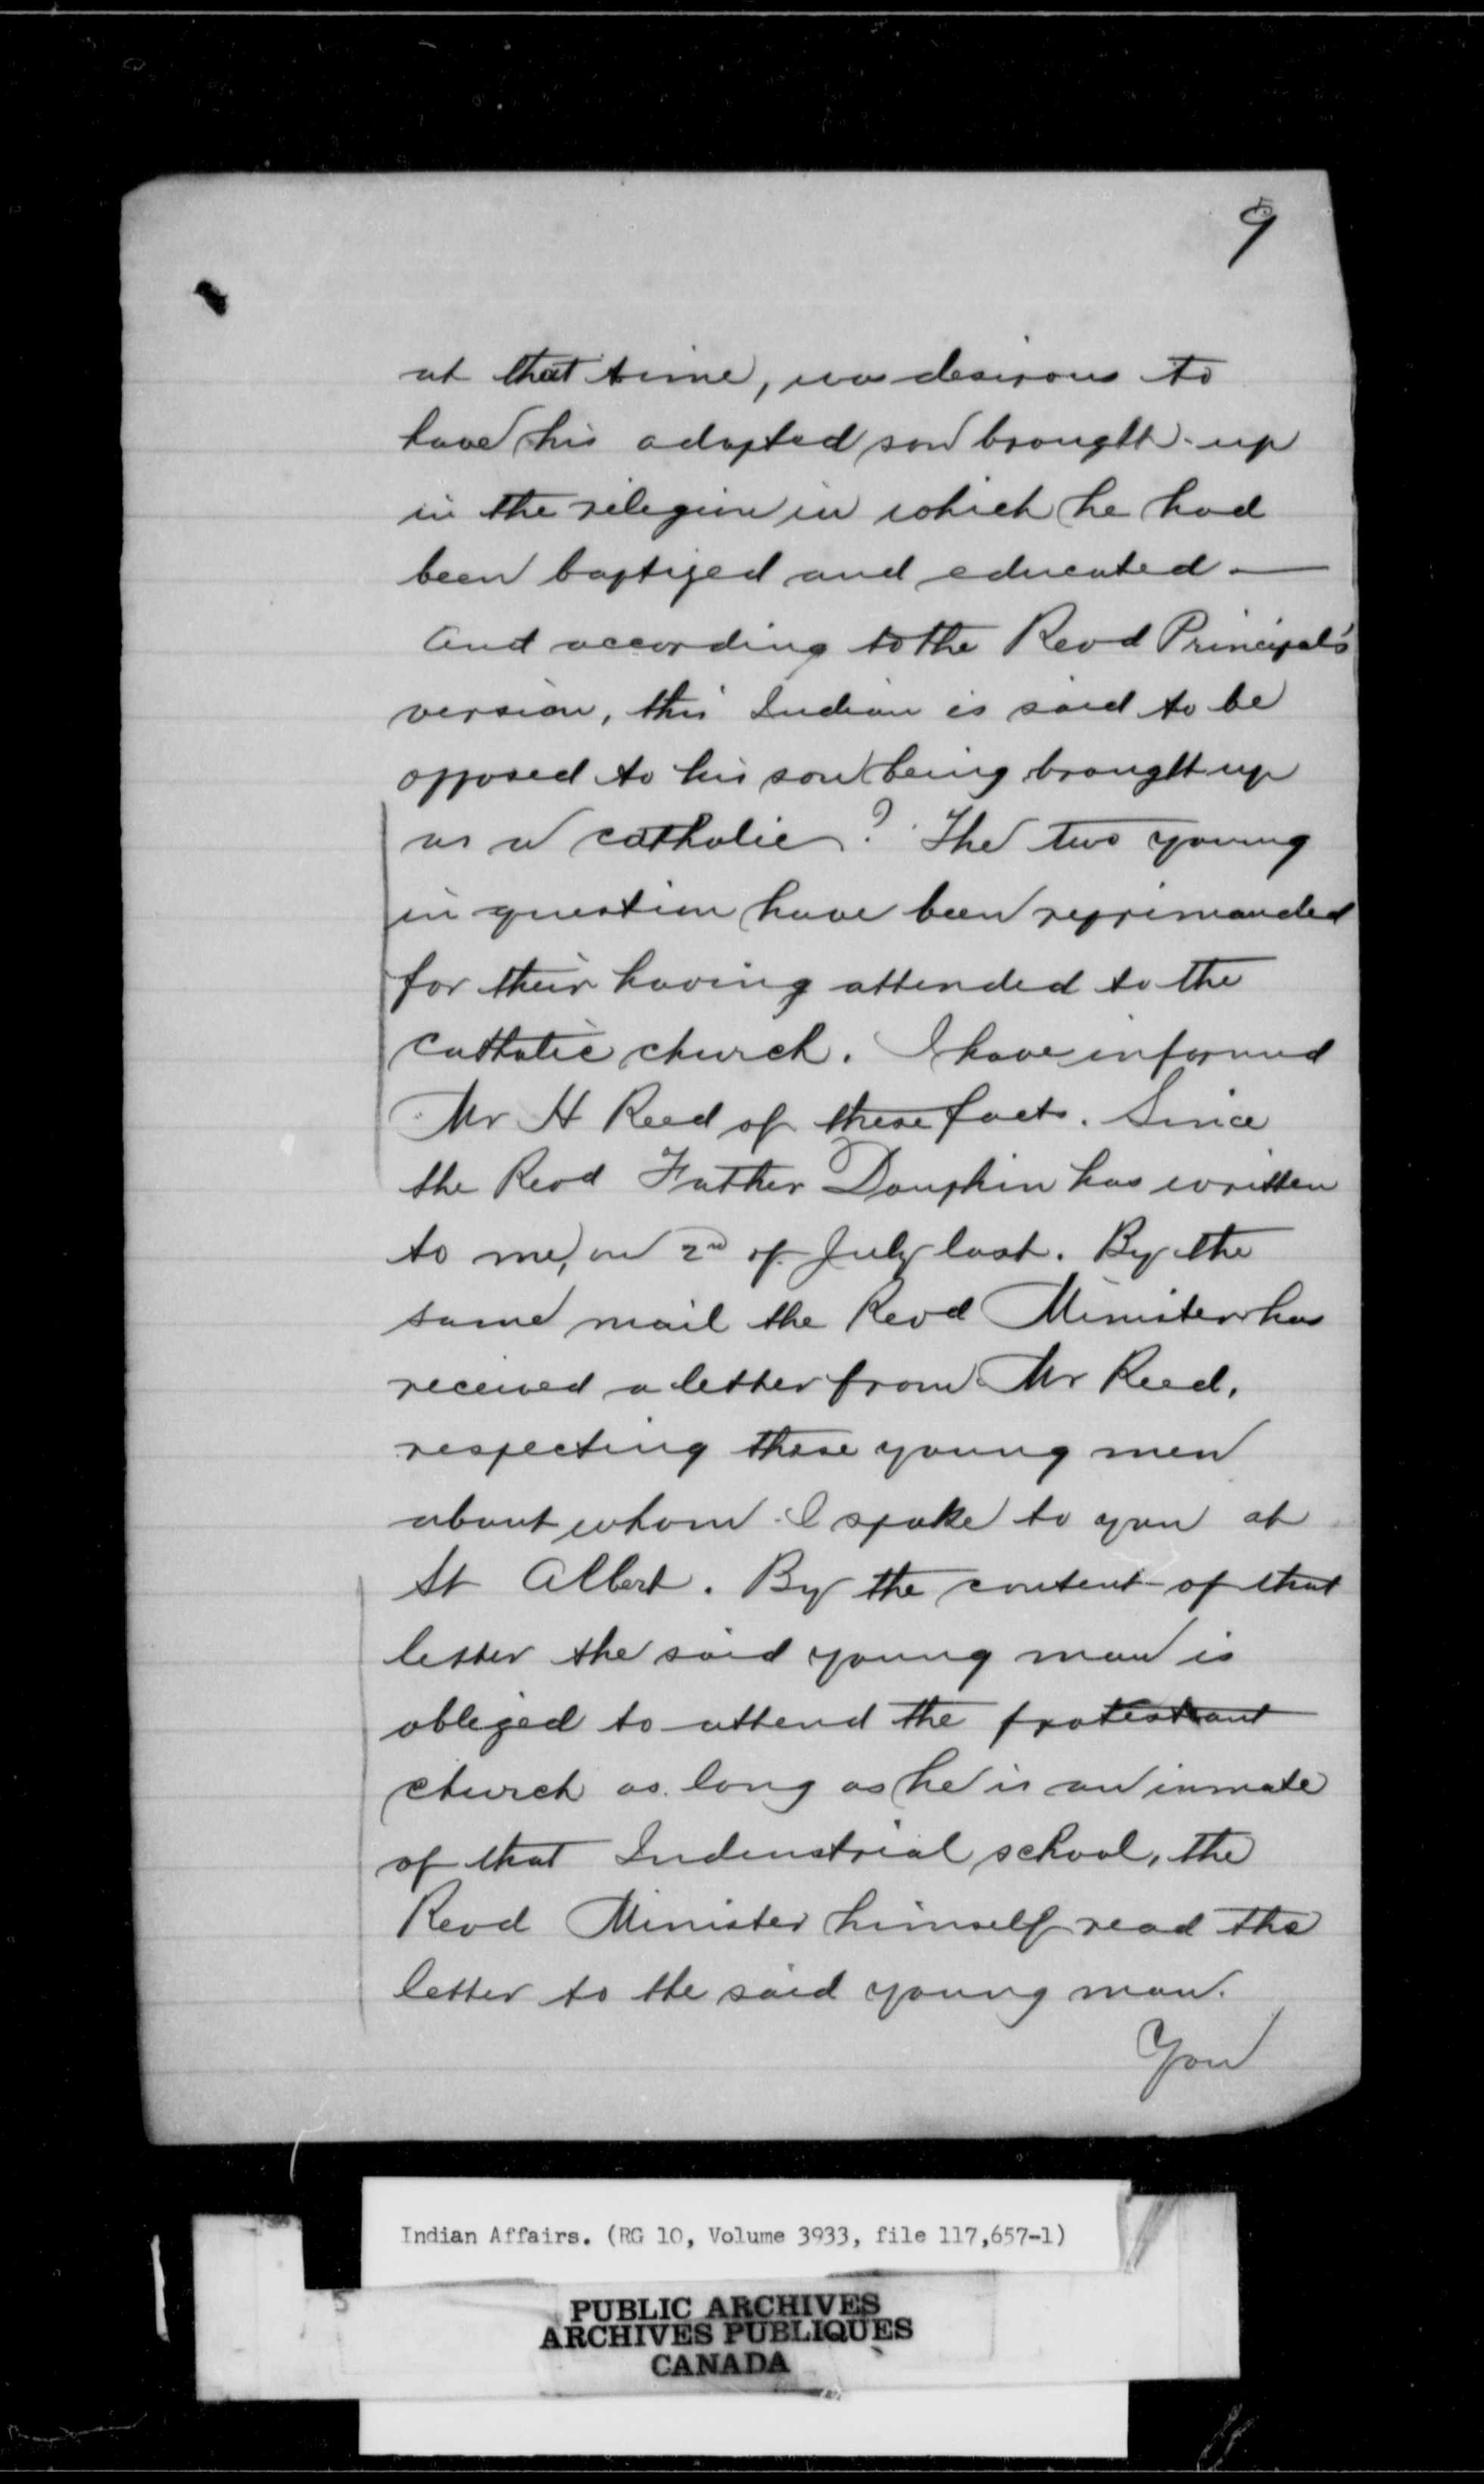 9
at that time, was desirous to
have his adopted son brought up
in the relegion in which he had
been baptized and educated.—
And according to the Revd Principal's
version, this Indian is said to be
opposed to his son being brought up
as a catholic? The two young
in question have been reprimanded
for their having attended to the
catholic church. I have informed
Mr H Reed of these facts. Since
the Revd Father Dauphin has written
to me, on 2nd of July last. By the
same mail the Revd Minister has
received a letter from Mr Reed,
respecting these young men
about whom I spoke to you at
St Albert. By the content of that
letter the said young man is
obliged to attend the protestant
church as long as he is an inmate
of that Indeustrial school, the
Revd Minister himself read the
letter to the said young man.
You
Indian Affairs. (RG 10, Volume 3933, file 117,657-1)
5
PUBLIC ARCHIVES
ARCHIVES PUBLIQUES
CANADA